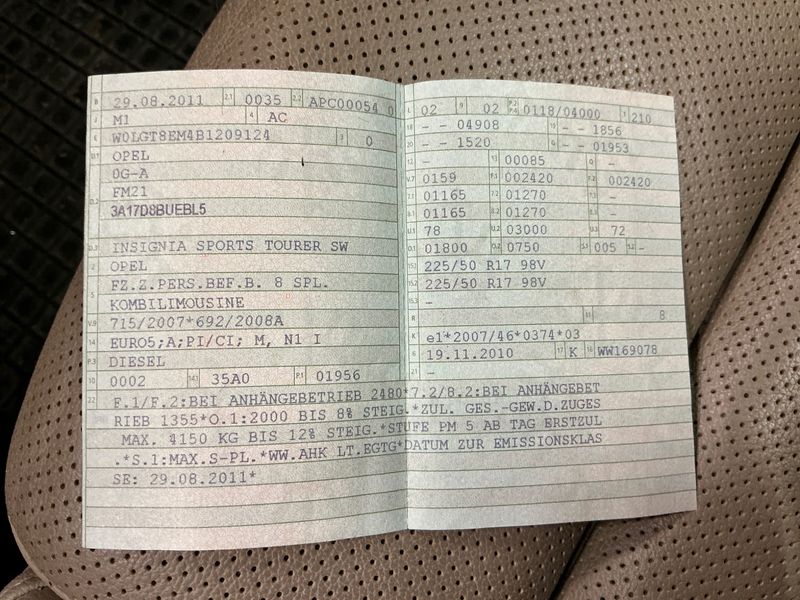 B 29.08.2011 2.1 0035 2.2 APC00054 0
J M1 4 AC
E W0LGT8EM4B1209124 3 0
D.1 OPEL
0G-A
D.2 FM21
3A17D8BUEBL5
D.3 INSIGNIA SPORTS TOURER SW
2 OPEL
5 FZ.Z.PERS.BEF.B. 8 SPL.
KOMBILIMOUSINE
V.9 715/2007*692/2008A
14 EURO5;A;PI/CI; M, N1 I
P.3 DIESEL
10 0002 14.1 35A0 P.1 01956
L 02 9 02 P.2 P.4 0118/04000 T 210
18 - - 04908 19 - - 1856
20 - - 1520 G - - 01953
12 - 13 00085 Q -
V.7 0159 F.1 002420 F.2 002420
7.1 01165 7.2 01270 7.3 -
8.1 01165 8.2 01270 8.3 -
U.1 78 U.2 03000 U.3 72
O.1 01800 O.2 0750 S.1 005 S.2 -
15.1 225/50 R17 98V
15.2 225/50 R17 98V
15.3 -
R 11 8
K e1*2007/46*0374*03
6 19.11.2010 17 K 16 WW169078
21 -
22 F.1/F.2:BEI ANHÄNGEBETRIEB 2480*7.2/8.2:BEI ANHÄNGEBET
RIEB 1355*O.1:2000 BIS 8% STEIG.*ZUL. GES.-GEW.D.ZUGES
MAX. 4150 KG BIS 12% STEIG.*STUFE PM 5 AB TAG ERSTZUL
.*S.1:MAX.S-PL.*WW.AHK LT.EGTG*DATUM ZUR EMISSIONSKLAS
SE: 29.08.2011*